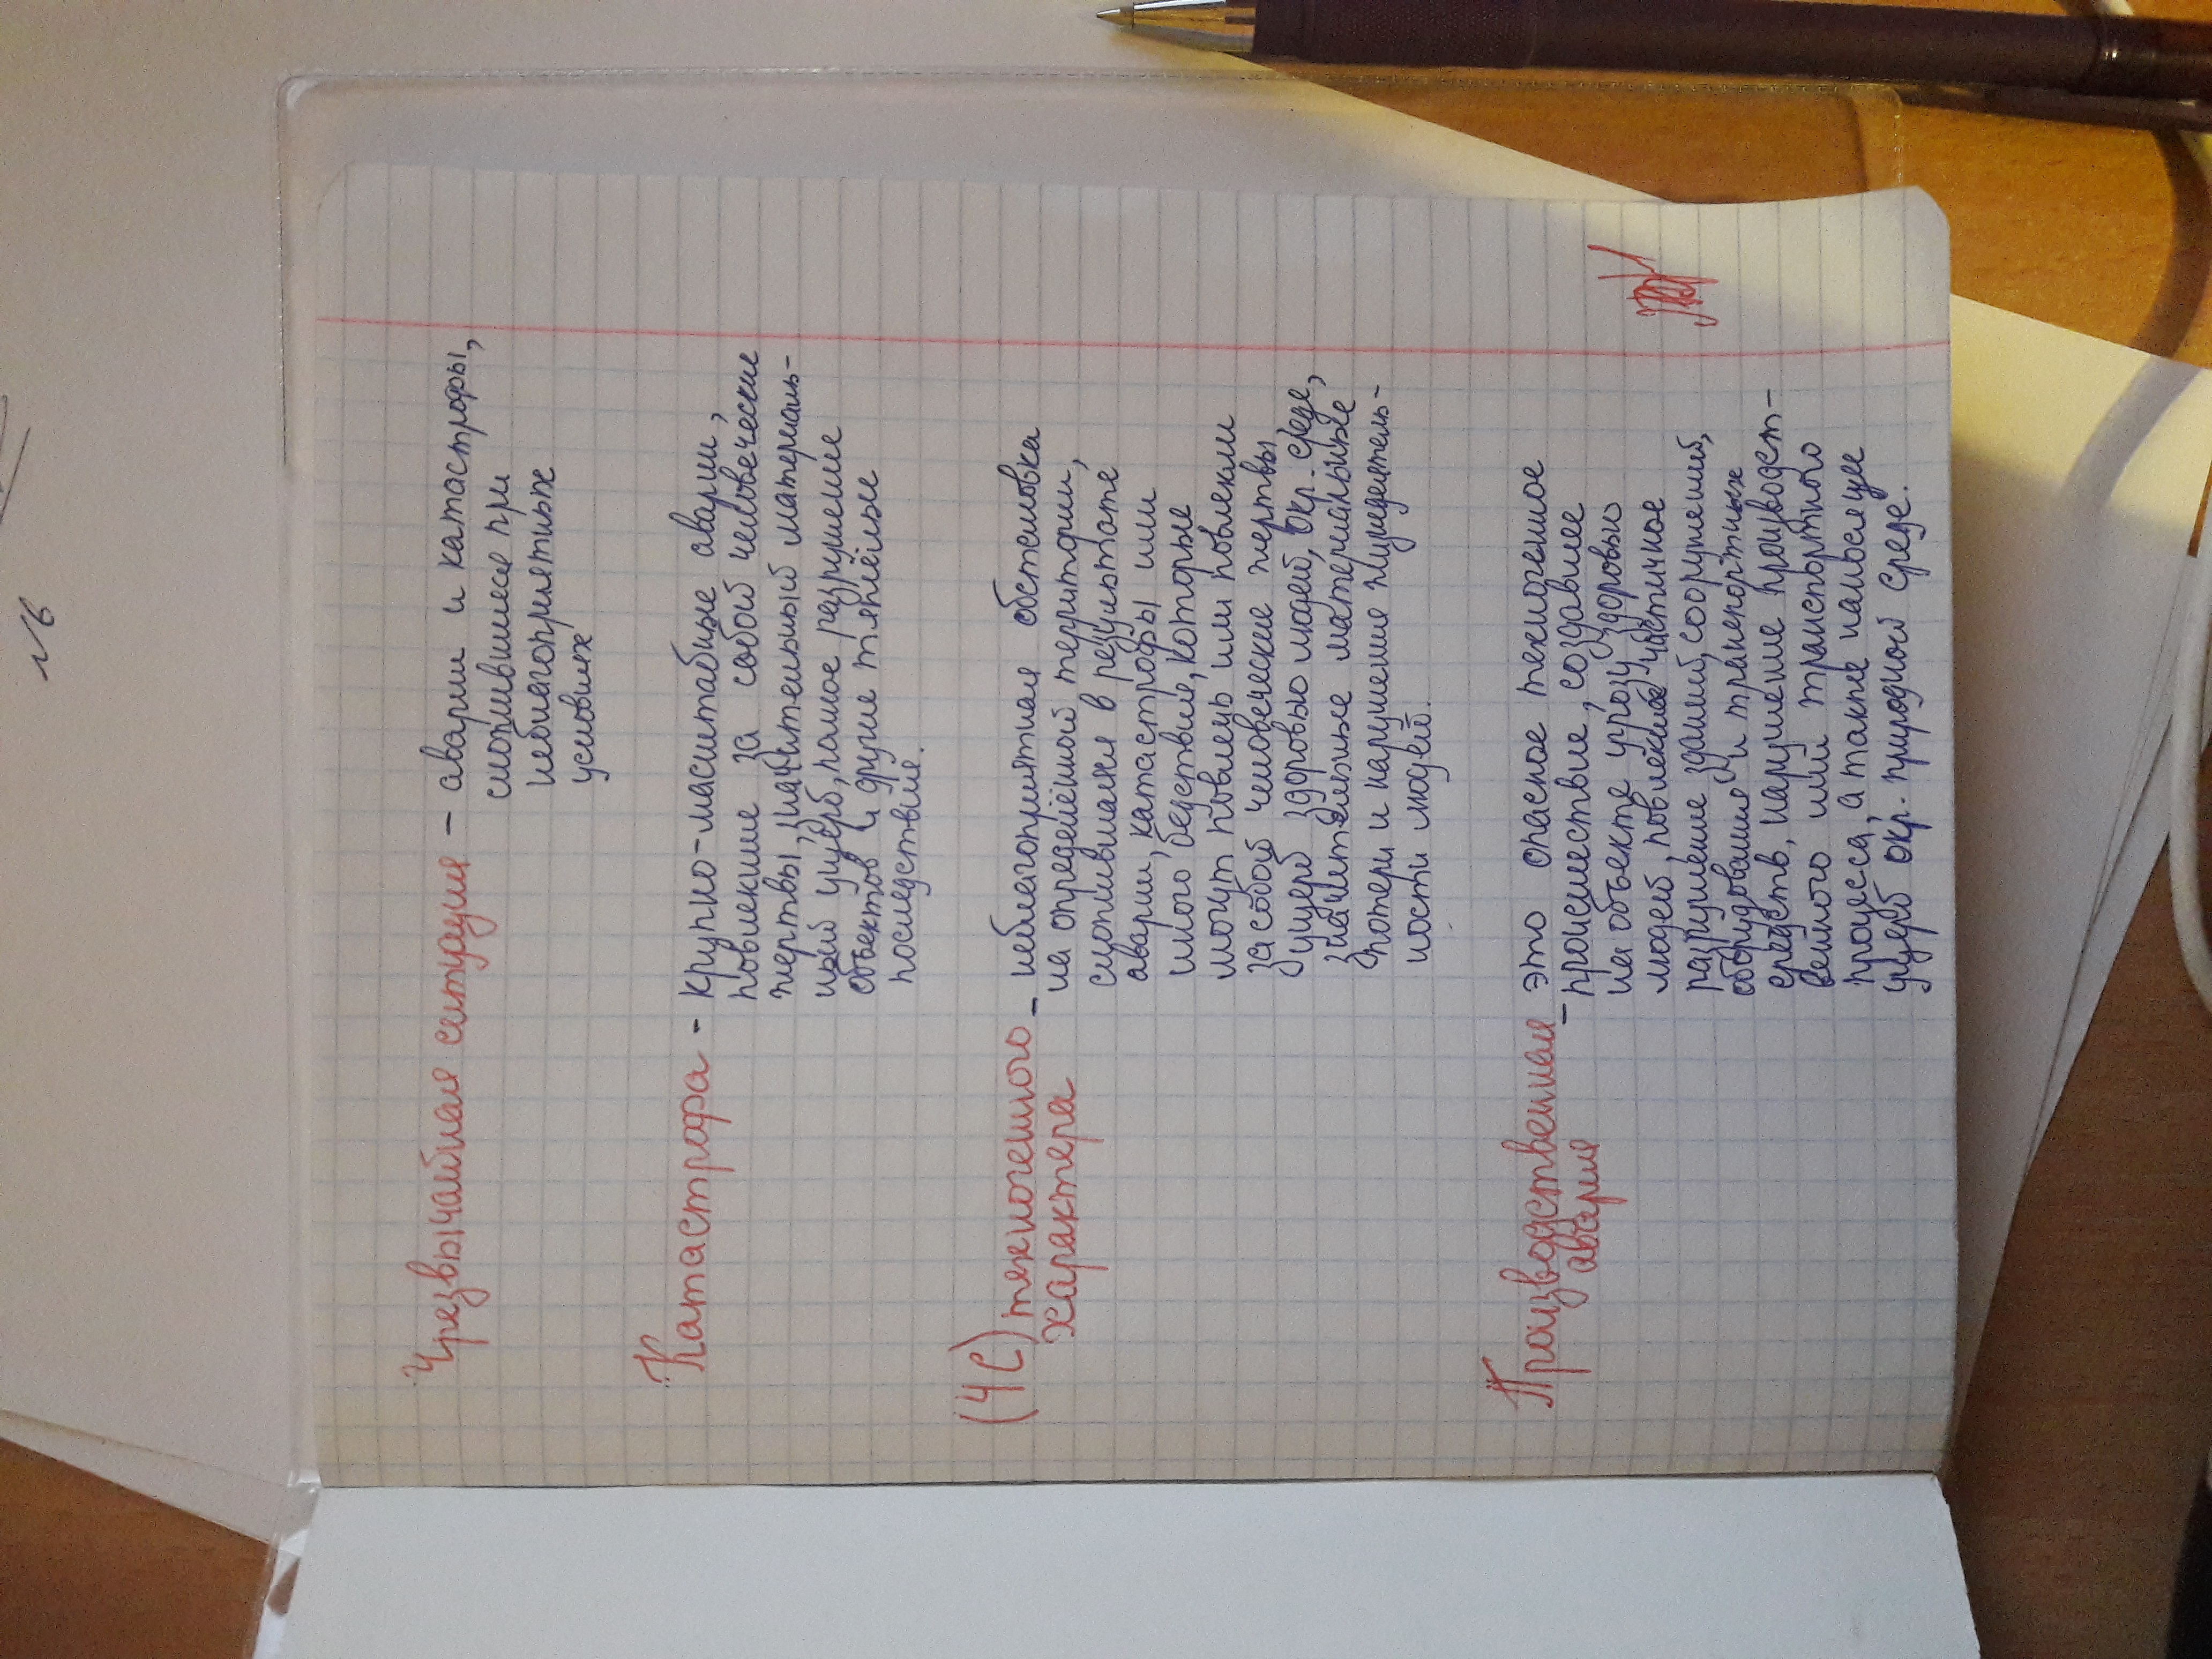 Чрезвычайная ситуация – аварии и катастрофы,
сложившиеся при
неблагоприятных
условиях
Катастрофа - крупно-масштабные аварии,
повлекшие за собой человеческие
жертвы, значительный материаль-
ный ущерб, полное разрушение
объектов и другие тяжёлые
последствия.
(ЧС) техногенного – неблагоприятная обстановка
характера на определённой территории,
сложившаяся в результате
аварии, катастрофы или
иного бедствия, которые
могут повлечь или повлекли
за собой человеческие жертвы
ущерб здоровью людей, окр. среде,
значительные материальные
потери и нарушение жизнедеятель-
ности людей.
Производственная – это опасное техногенное
авария происшествие, создавшее
на объекте угрозу здоровью
людей, повлекшее частичное
разрушение зданий, сооружений,
оборудования и транспортных
средств, нарушение производст-
венного или транспортного
процеса, а также нанесение
ущерб окр. природной среде.